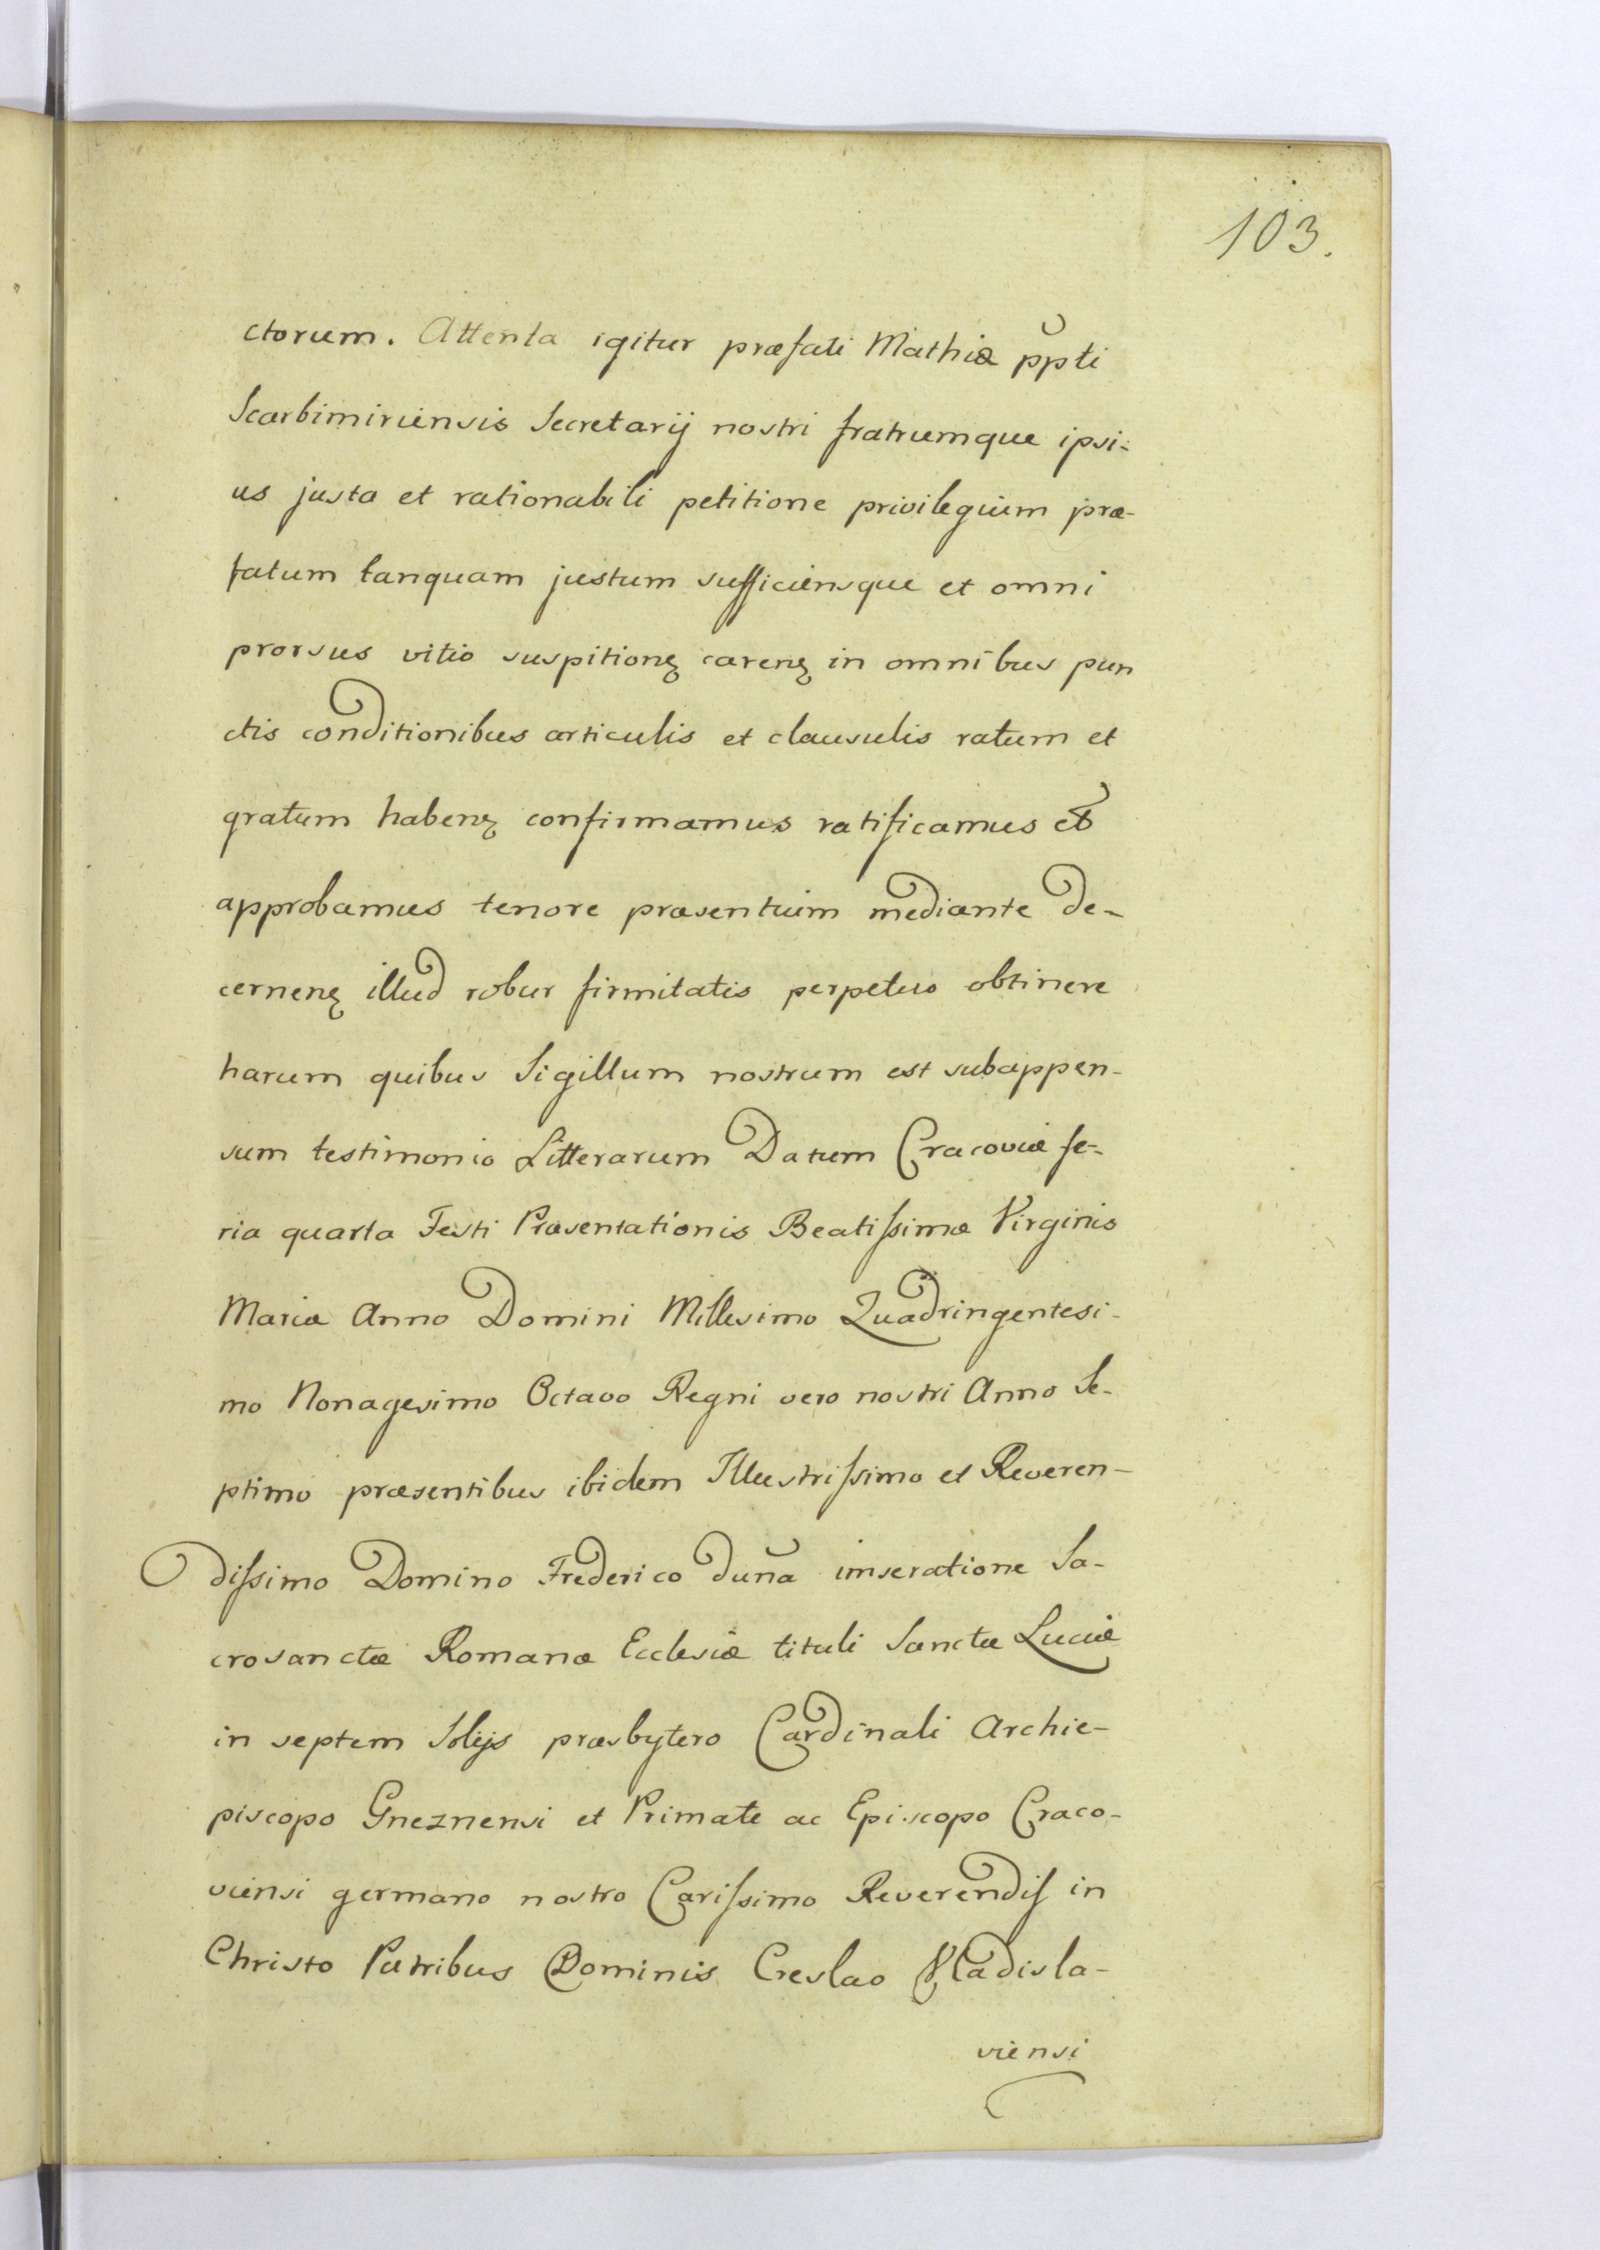 103.
ctorum. Attenta igitur præfati Mathiæ ppti
Scarbimiriensis Secretarij nostri fratrumque ipsi-
us justa et rationabili petitione privilegium præ-
fatum tanquam justum sufficiensque et omni
prorsus vitio suspitionꝫ carenꝫ in omnibus pun
ctis conditionibus articulis et clausulis ratum et
gratum habenꝫ confirmamus ratificamus et
approbamus tenore præsentium mediante de-
cernenꝫ illud robur firmitatis perpetuo obtinere
harum quibus Sigillum nostrum est subappen-
sum testimonio Litterarum Datum Cracoviæ fe-
ria quarta Festi Præsentationis Beatissimæ Virginis
Mariæ Anno Domini Millesimo Quadringentesi-
mo Nonagesimo Octavo Regni vero nostri Anno Se-
ptimo præsentibus ibidem Illustrissimo et Reveren-
dissimo Domino Frederico duña imseratione Sa-
crosanctæ Romanæ Ecclesiæ tituli Sanctæ Luciæ
in septem Solijs præsbytero Cardinali Archie-
piscopo Gneznensi et Primate ac Episcopo Craco-
viensi germano nostro Carissimo Reverendis in
Christo Patribus Dominis Creslao Vladisla-
viensi